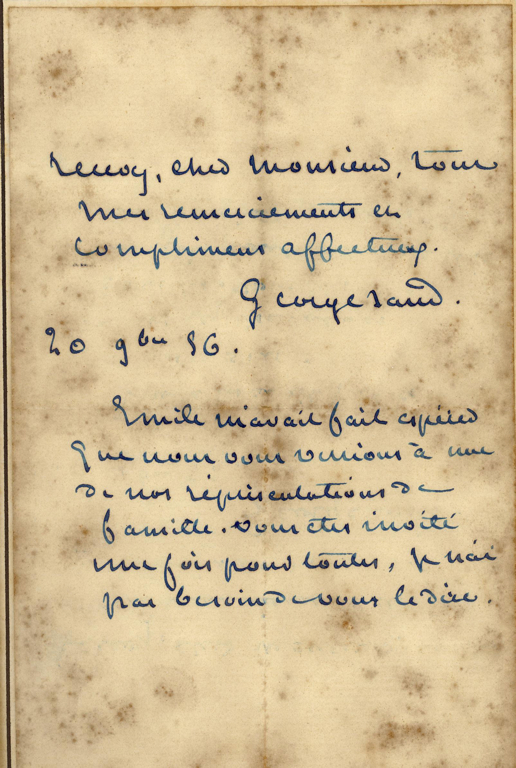 recevez, cher monsieur, tous
mes remerciements et
complimens affectueux.
George Sand.
20 9bre 56.
Emile m'avait fait espérer
que nous vous verrions à une
de nos représentations de
famille. vous êtes invité
une fois pour toutes, je n'ai
pas besoin de vous le dire.